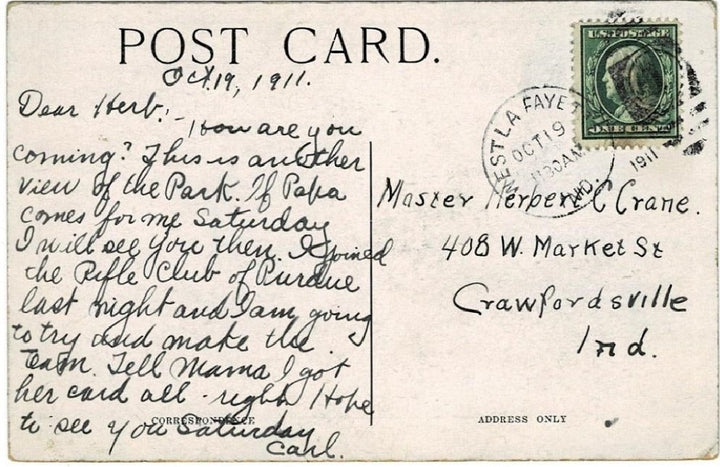 POST CARD.
Oct. 19, 1911.
Dear Herb:-
How are you
coming? This is another
view of the Park. If Papa
comes for me Saturday
I will see you then. I joined
the Rifle Club of Purdue
last night and I am going
to try and make the
Team. Tell Mama I got
her card all-right. Hope
to see you Saturday
Carl.
CORRESPONDENCE
U.S. POSTAGE
ONE CENT
WEST LAFAYET
OCT 19
30 AM
IND.
1911
Master Herbert C Crane.
408 W. Market St
Crawfordsville
Ind.
ADDRESS ONLY